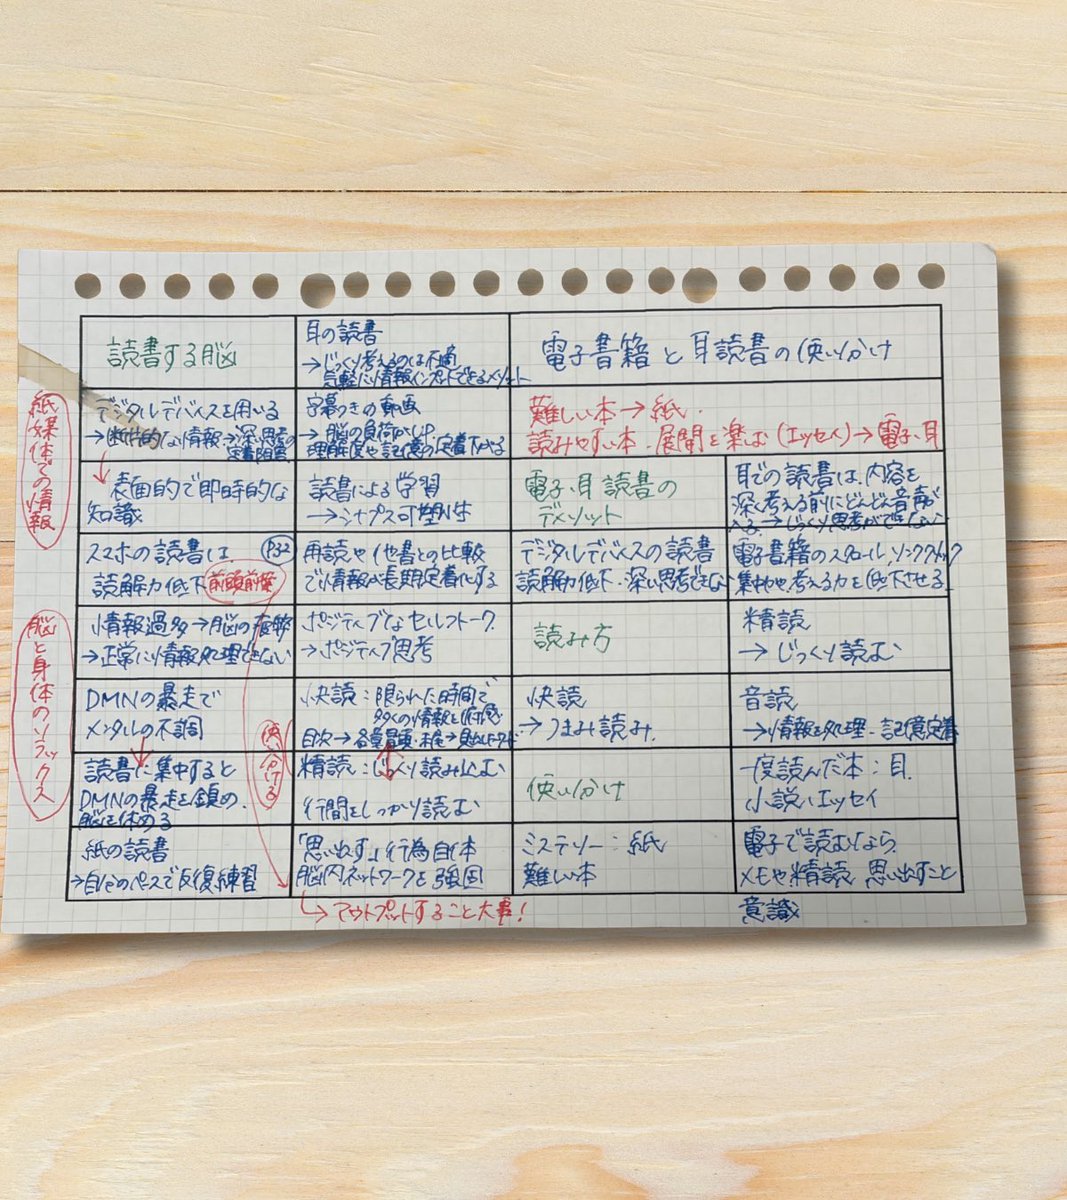 読書する脳
耳の読書
→じっくり考えるのは不適
気軽に情報インプットできるメリット
電子書籍と耳読書の使い分け
紙媒体での情報
デジタルデバイスを用いる
→断片的な情報→深い思考の
定着阻害
字幕つきの動画
→脳の負荷がUP
理解度や記憶の定着下がる
難しい本→紙.
読みやすい本.展開を楽しむ(エッセイ)→電子.耳
↓表面的で即時的な
知識
読書による学習
→シナプス可塑性
電子.耳読書の
デメリット
耳での読書は、内容を
深く考える前にどんどん音声が
入る→じっくり思考ができない
スマホの読書は P32
読解力低下 前頭前野
再読や他書との比較
で情報が長期定着化する
デジタルデバイスの読書
読解力低下・深い思考できない
電子書籍のスクロール,リンククリック
集中や考える力を低下させる.
脳と身体のリラックス
情報過多→脳の疲労
→正常に情報処理できない
ポジティブなセルフトーク
→ポジティブ思考
読み方
精読
→じっくり読む
DMNの暴走で
メンタルの不調
快読:限られた時間で
多くの情報を俯瞰
目次→各章冒頭・末尾→
快読
→つまみ読み.
音読
→情報を処理・記憶定着
使い分ける
読書に集中すると
DMNの暴走を鎮め.
脳を休める
精読:じっくり読み込む
行間をしっかり読む
使い分け
一度読んだ本:耳.
小説.エッセイ
紙の読書
→自分のペースで反復練習
「思い出す」行為自体
脳内ネットワークを強固
ミステリー:紙
難しい本
電子で読むなら.
メモや精読 思い出すこと
意識
↳アウトプットすること大事!